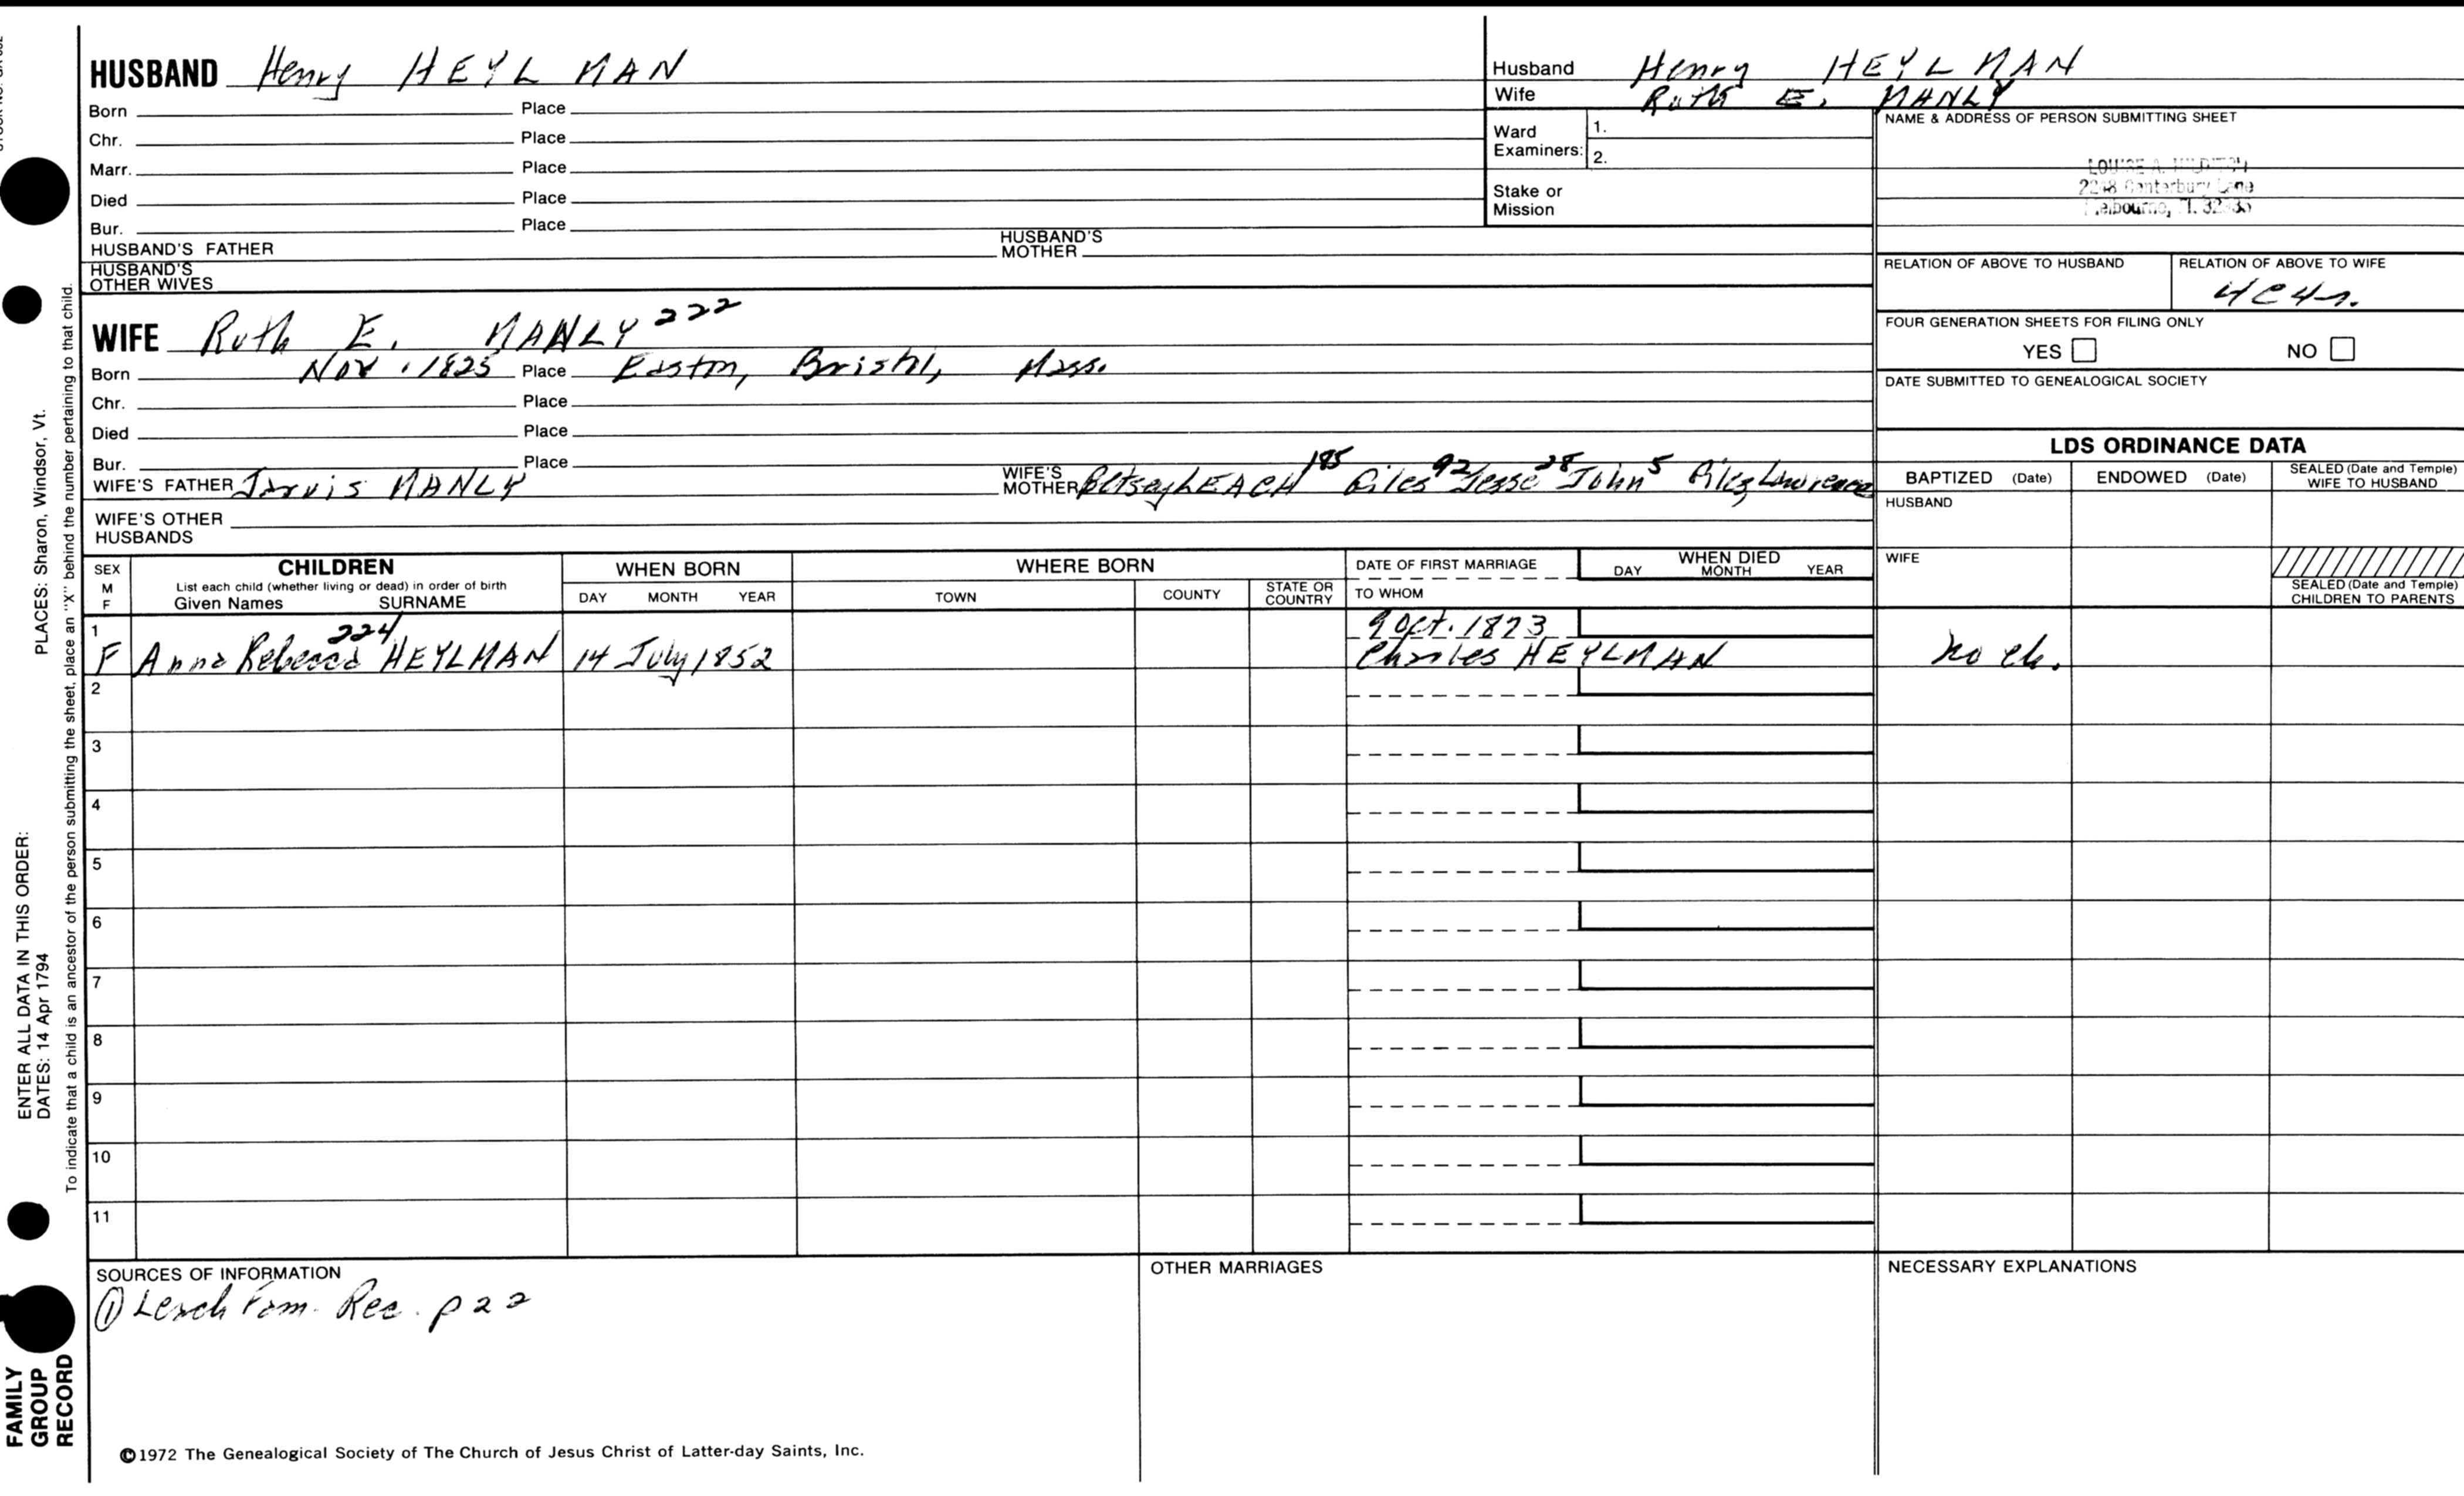 HUSBAND Henry HEYLMAN
Born Place
Chr. Place
Marr. Place
Died Place
Bur. Place
HUSBAND'S FATHER HUSBAND'S MOTHER
HUSBAND'S OTHER WIVES
Husband Henry HEYLMAN
Wife Ruth E. MANLY
Ward Examiners: 1.
2.
Stake or Mission
NAME & ADDRESS OF PERSON SUBMITTING SHEET
LOUISE A.
Canterbury Lane
RELATION OF ABOVE TO HUSBAND RELATION OF ABOVE TO WIFE
FOUR GENERATION SHEETS FOR FILING ONLY
YES NO
DATE SUBMITTED TO GENEALOGICAL SOCIETY
WIFE Ruth E. MANLY 222
Born Nov. 1825 Place Easton, Bristol, Mass.
Chr. Place
Died Place
Bur. Place
WIFE'S FATHER Jarvis MANLY WIFE'S MOTHER Betsey LEACH 195 Giles 92 Jesse 28 John 5 Giles Lawrence
WIFE'S OTHER HUSBANDS
LDS ORDINANCE DATA
BAPTIZED (Date) ENDOWED (Date) SEALED (Date and Temple) WIFE TO HUSBAND
HUSBAND
WIFE
SEALED (Date and Temple) CHILDREN TO PARENTS
SEX M F CHILDREN WHEN BORN WHERE BORN DATE OF FIRST MARRIAGE WHEN DIED
List each child (whether living or dead) in order of birth
Given Names SURNAME DAY MONTH YEAR TOWN COUNTY STATE OR COUNTRY TO WHOM DAY MONTH YEAR
1 224 9 Oct. 1873
F Anna Rebecca HEYLMAN 14 July 1852 Charles HEYLMAN no ch.
2
3
4
5
6
7
8
9
10
11
SOURCES OF INFORMATION OTHER MARRIAGES NECESSARY EXPLANATIONS
① Leach Fam. Rec. p 22
©1972 The Genealogical Society of The Church of Jesus Christ of Latter-day Saints, Inc.
PLACES: Sharon, Windsor, Vt.
ENTER ALL DATA IN THIS ORDER:
DATES: 14 Apr 1794
To indicate that a child is an ancestor of the person submitting the sheet, place an "X" behind the number pertaining to that child.
FAMILY GROUP RECORD